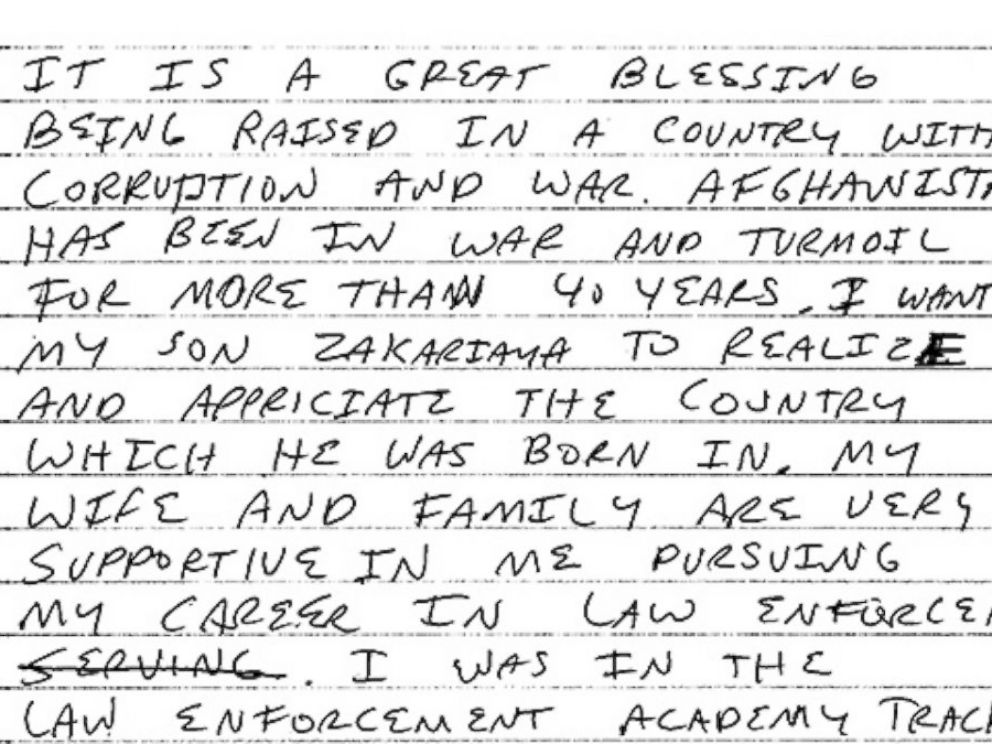 IT IS A GREAT BLESSING
BEING RAISED IN A COUNTRY WITH
CORRUPTION AND WAR. AFGHANISTA
HAS BEEN IN WAR AND TURMOIL
FOR MORE THAN 40 YEARS. I WANT
MY SON ZAKARIAYA TO REALIZE
AND APPRICIATE THE COUNTRY
WHICH HE WAS BORN IN. MY
WIFE AND FAMILY ARE VERY
SUPPORTIVE IN ME PURSUING
MY CAREER IN LAW ENFORCE
SERVING. I WAS IN THE
LAW ENFORCEMENT ACADEMY TRACK